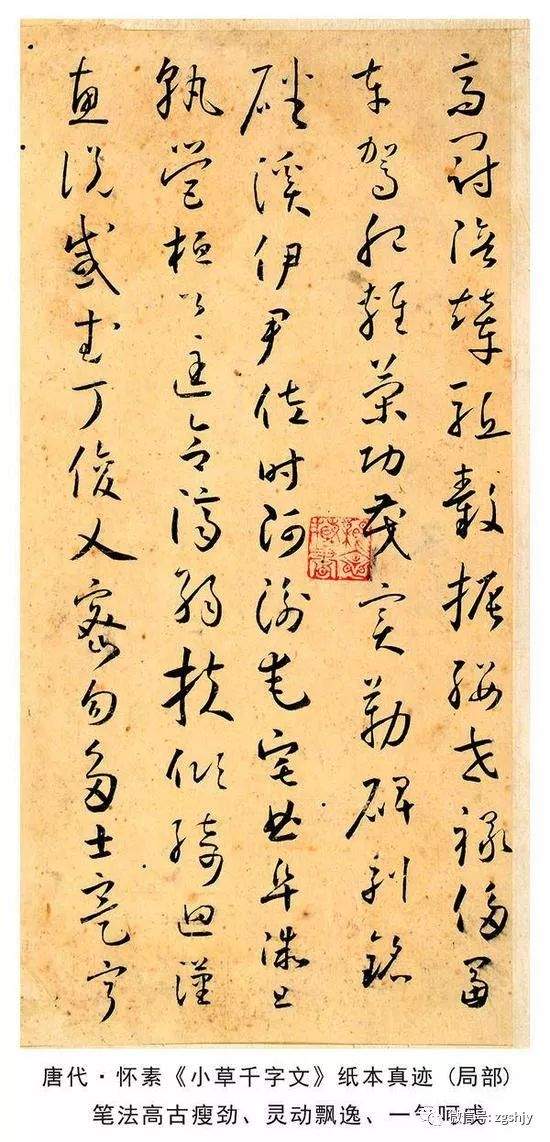 高冠陪輦驅轂振纓世祿侈富
車駕肥輕策功茂實勒碑刻銘
磻溪伊尹佐時阿衡奄宅曲阜微旦
孰營桓公匡合濟弱扶傾綺迴漢
惠說感武丁俊乂密勿多士寔寧
唐代·怀素《小草千字文》纸本真迹 (局部)
笔法高古瘦劲、灵动飘逸、一气呵成
微信号: zgshjy